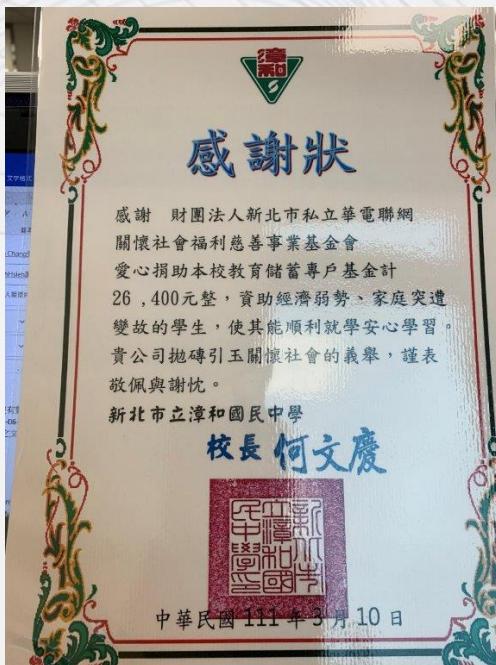 漳和
感謝狀
感謝 財團法人新北市私立華電聯網
關懷社會福利慈善事業基金會
愛心捐助本校教育儲蓄專戶基金計
26,400元整，資助經濟弱勢、家庭突遭
變故的學生，使其能順利就學安心學習。
貴公司拋磚引玉關懷社會的義舉，謹表
敬佩與謝忱。
新北市立漳和國民中學
校長 何文慶
新北市
立漳和國
民中學印
中華民國 111 年 3 月 10 日